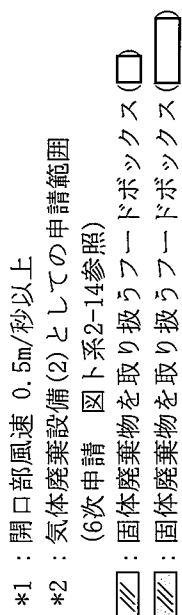 *1 : 開口部風速 0.5m/秒以上
*2 : 気体廃棄設備(2)としての申請範囲
(6次申請 図ト系2-14参照)
: 固体廃棄物を取り扱うフードボックス( )
: 固体廃棄物を取り扱うフードボックス( )